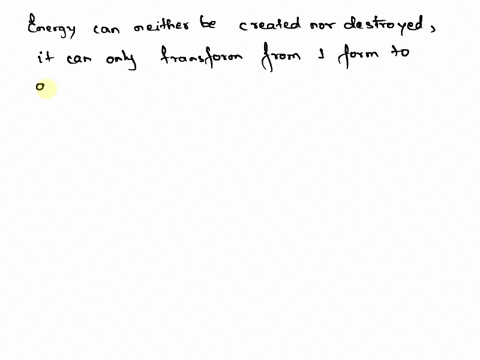 Energy can neither be created nor destroyed,
it can only transform from 1 form to
o